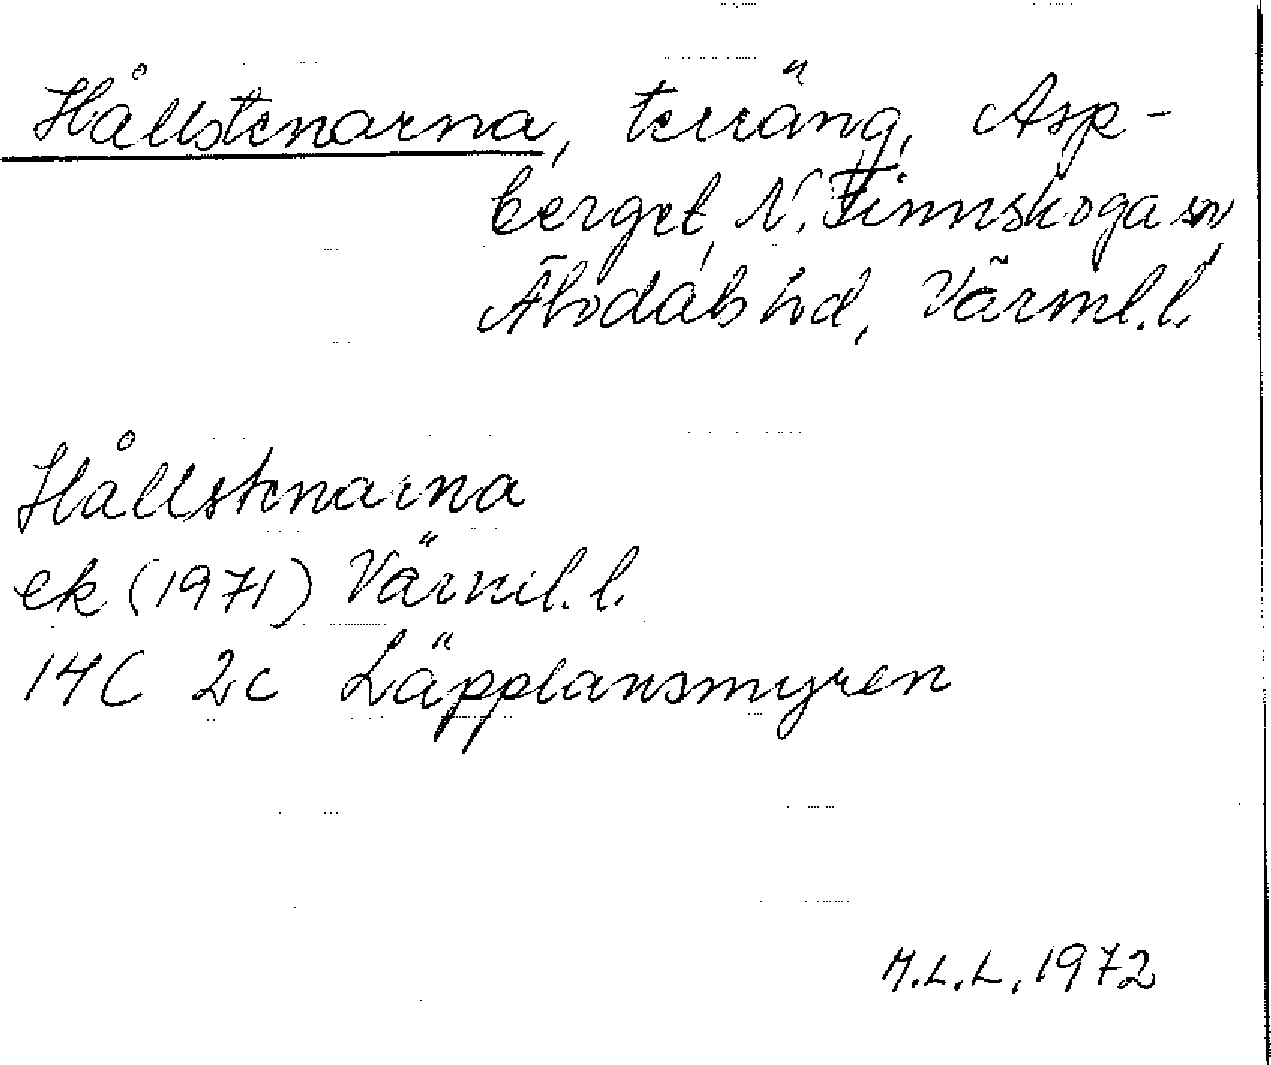 Hållstenarna, terräng, Asp-
berget, N. Finnskoga sn,
Älvdals hd, Värml. l.
Hållstenarna
ek (1971) Värml. l.
14C 2c Läpplansmyren
M.L.L. 1972